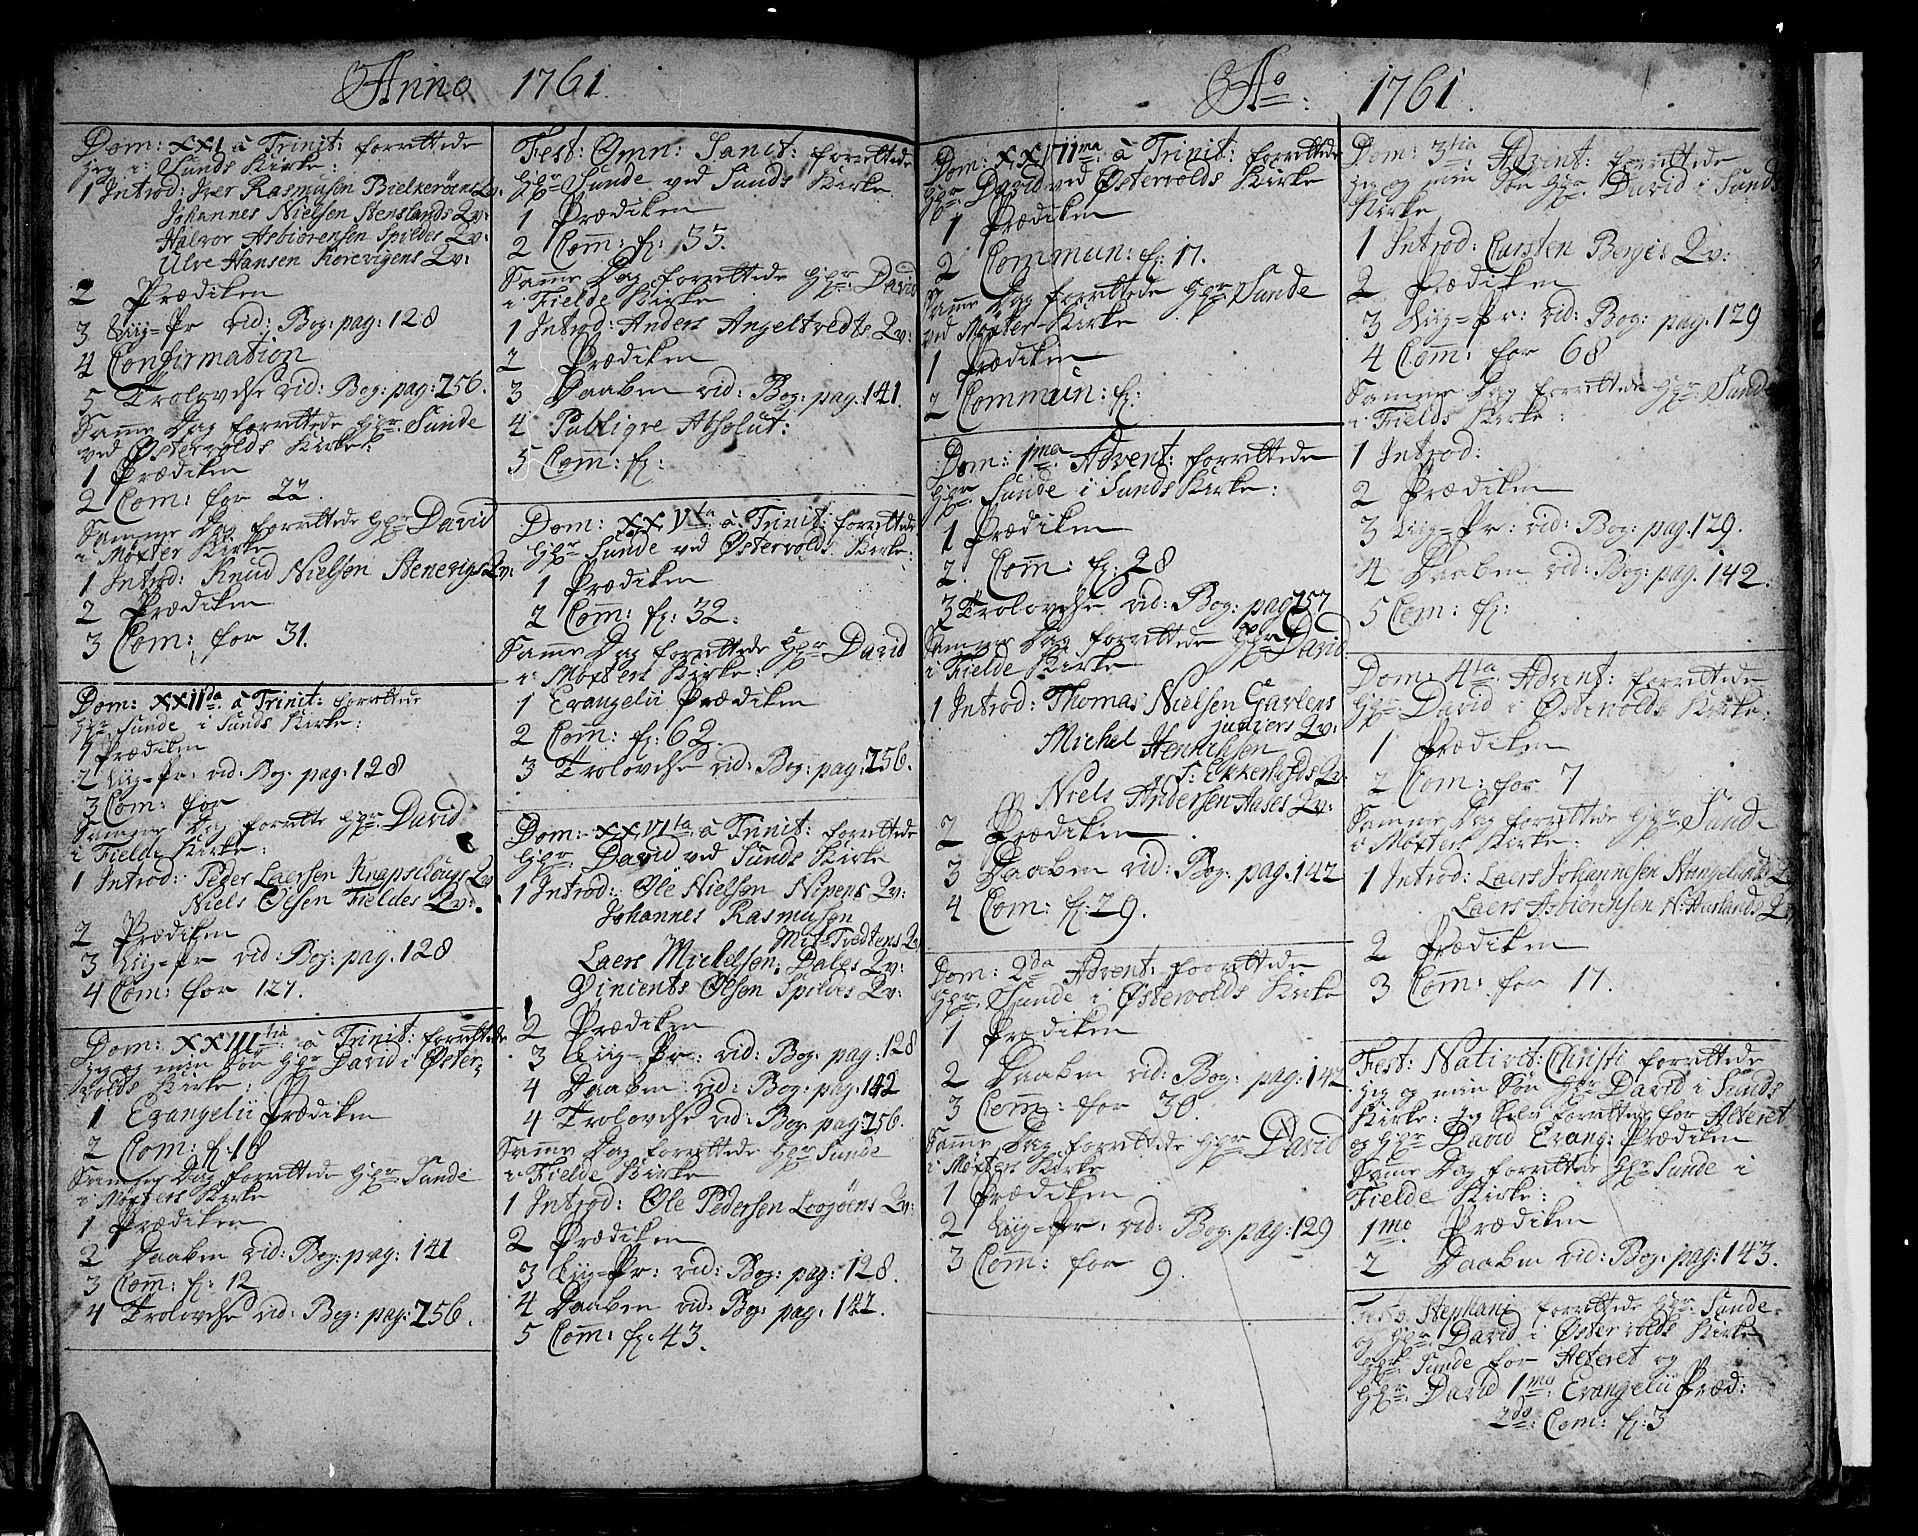 Anno 1761
Dom: XXI à Trinit: forrettede
Jeg i Sunds Kirke:
1 Introd: Iver Rasmusøn Bielkerøens Qv:
Johannes Nielsen Stenslands Qv:
Halvor Asbiørensen Spildes Qv:
Ulve Hansen Korevigens Qv:
2 Prædiken
3 Liig-Pr vid: Bog: pag: 128
4 Confirmation
5 Trolovelse vid: Bog: pag: 256.
Samme Dag forrettede Hr: Sunde
ved Østervolds Kirke:
1 Prædiken
2 Com: for 22.
Samme Dag forrettede Hr David
i Møxter Kirke
1 Introd: Knud Nielsøn Stenevigs Qv:
2 Prædiken
3 Com: for 31.
Dom: XXIIda à Trinit: forrettede
Hr Sunde i Sunds Kirke:
1 Prædiken
2 Liig-Pr: vid: Bog: pag: 128
3 Com: for
Samme Dag forrette Hr David
i Fielde Kirke:
1 Introd: Peder Laersen Knapschougs Qv
Niels Olsen Fieldes Qv:
2 Prædiken
3 Liig-Pr vid: Bog: pag: 128
4 Com: for 127.
Dom: XXIIItia à Trinit: forrettede
Jeg og min Søn Hr David i Øster-
volds Kirke:
1 Evangelii Prædiken
2 Com: f: 18
Samme Dag forrettede Hr Sunde
i Møxters Kirke
1 Prædiken
2 Daaben vid: Bog: pag: 141
3 Com: f: 12
4 Trolovelse vid: Bog: pag: 256.
Fest: Omn: Sanct: forrettede
Hr Sunde ved Sunds Kirke
1 Prædiken
2 Com: f: 33.
Samme Dag forrettede Hr: David
i Fielde Kirke
1 Introd: Anders Angeltvedts Qv:
2 Prædiken
3 Daaben vid: Bog: pag: 141.
4 Publiqve Absolut:
5 Com: f:
Dom: XXVta à Trinit: forrettede
Hr Sunde ved Østervolds Kirke:
1 Prædiken
2 Com: f: 32.
Samme Dag forrettede Hr David
i Møxters Kirke:
1 Evangelii Prædiken
2 Com: f: 62.
3 Trolovelse vid: Bog: pag: 256.
Dom: XXVIta à Trinit: forrettede
Hr: David ved Sunds Kirke
1 Introd: Ole Nielsøn Nipens Qv:
Johannes Rasmusøn
Mit-Tvedtens Qv
Laers Michelsen Dales Qv:
Vincents Olsen Spildes Qv:
2 Prædiken
3 Liig-Pr: vid: Bog: pag: 128
4 Daaben vid: Bog: pag: 142
4 Trolovelse vid: Bog: pag: 256.
Samme Dag forrettede Hr Sunde
i Fielde Kirke
1 Introd: Ole Pedersen Loogøens Qv:
2 Prædiken
3 Liig-Pr: vid: Bog: pag: 128.
4 Daaben vid: Bog: pag: 142.
5 Com: f: 43.
Ao: 1761.
Dom: XXVIIma: à Trinit: forrettede
Hr: David ved Østervolds Kirke
1 Prædiken
2 Commun: f: 17.
Samme Dag forrettede Hr Sunde
ved Møxter-Kirke
1 Prædiken
2 Commun: f:
Dom: 1ma Advent: forrettede
Hr Sunde i Sunds Kirke:
1 Prædiken
2. Com: f: 28
3 Trolovelse vid: Bog: pag 257
Samme Dag forrettede Hr David
i Fielde Kirke
1 Introd: Thomas Nielsen Gavlens
Qv:
Michel Henrichsen
S: Ekkerhofds Qv:
Niels Andersen Aases Qv:
2 Prædiken
3 Daaben vid: Bog: pag: 142
4 Com: f: 29.
Dom: 2da Advent: forrettede
Hr Sunde i Østervolds Kirke
1 Prædiken
2 Daaben vid: Bog: pag: 142
3 Com: for 30.
Samme Dag forrettede Hr David
i Møxters Kirke
1 Prædiken
2 Liig-Pr: vid: Bog: pag: 129
3 Com: for 9.
Dom: 3tia Advent: forrettede
Jeg og min Søn Hr: David i Sunds
Kirke
1 Introd: Carsten Berges Qv:
2 Prædiken
3 Liig-Pr: vid: Bog: pag: 129
4 Com: for 68
Samme Dag forrettede Hr Sunde
i Fields Kirke:
1 Introd:
2 Prædiken
3 Liig-Pr: vid: Bog: pag: 129.
4 Daaben vid: Bog: pag. 142.
5 Com: f:
Dom: 4ta Advent: forrettede
Hr David i Østervolds Kirke:
1 Prædiken
2 Com: for 7
Samme Dag forrettede Hr Sunde
i Møxters Kirke:
1 Introd: Laers Johannesen Hangelands Qv
Laers Asbiørensen N: Haulands Qv
2 Prædiken
3 Com: for 17.
Fest: Nativit: Christi forrettede
Jeg og min Søn Hr David i Sunds
Kirke: Jeg Selv forrettede for Alteret
og Hr David Evang: Prædiken
Samme Dag forrettede Hr Sunde i
Fielde Kirke:
1mo Prædiken
2 Daaben vid: Bog: pag: 143.
Festo Stephani forrettede Hr: Sunde
og Hr David i Østervolds Kirke
Hr Sunde for Alteret og
Hr: David 1mo: Evangelii Præd:
2do: Com: f: 3